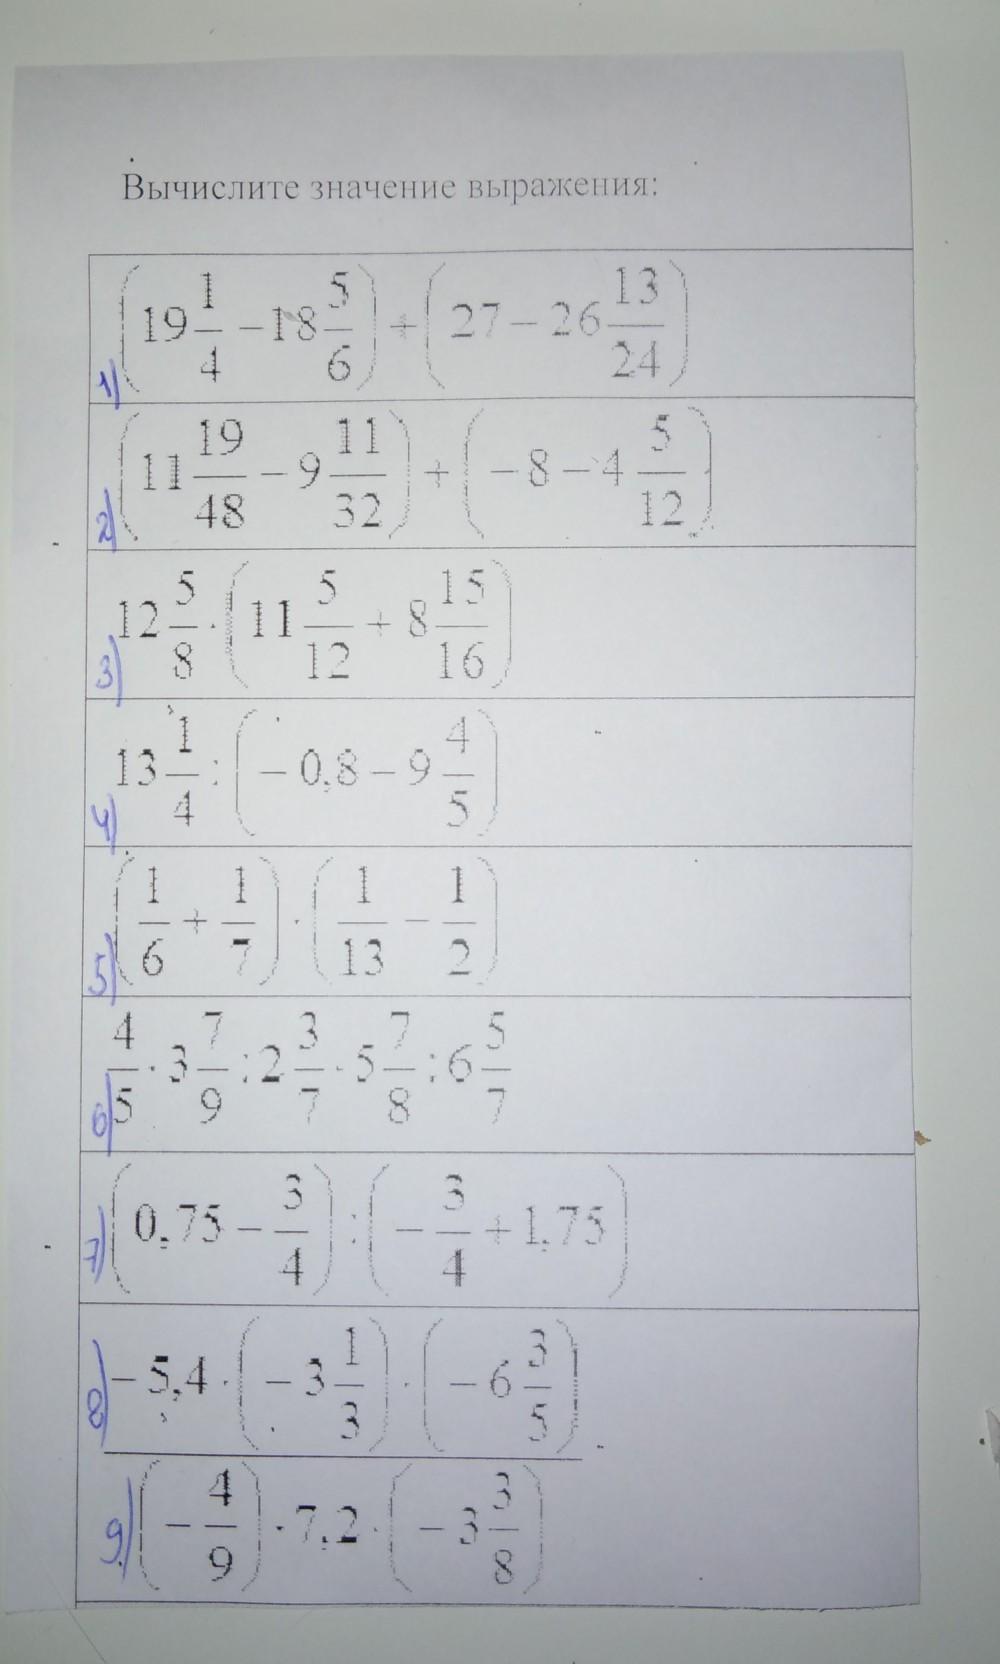 Вычислите значение выражения:
1) (19 1/4 − 18 5/6) + (27 − 26 13/24)
2) (11 19/48 − 9 11/32) + (−8 − 4 5/12)
3) 12 5/8 · (11 5/12 + 8 15/16)
4) 13 1/4 : (−0,8 − 9 4/5)
5) (1/6 + 1/7) · (1/13 − 1/2)
6) 4/5 · 3 7/9 : 2 3/7 · 5 7/8 : 6 5/7
7) (0,75 − 3/4) : (−3/4 + 1,75)
8) −5,4 · (−3 1/3) · (−6 3/5)
9) (−4/9) · 7,2 · (−3 3/8)